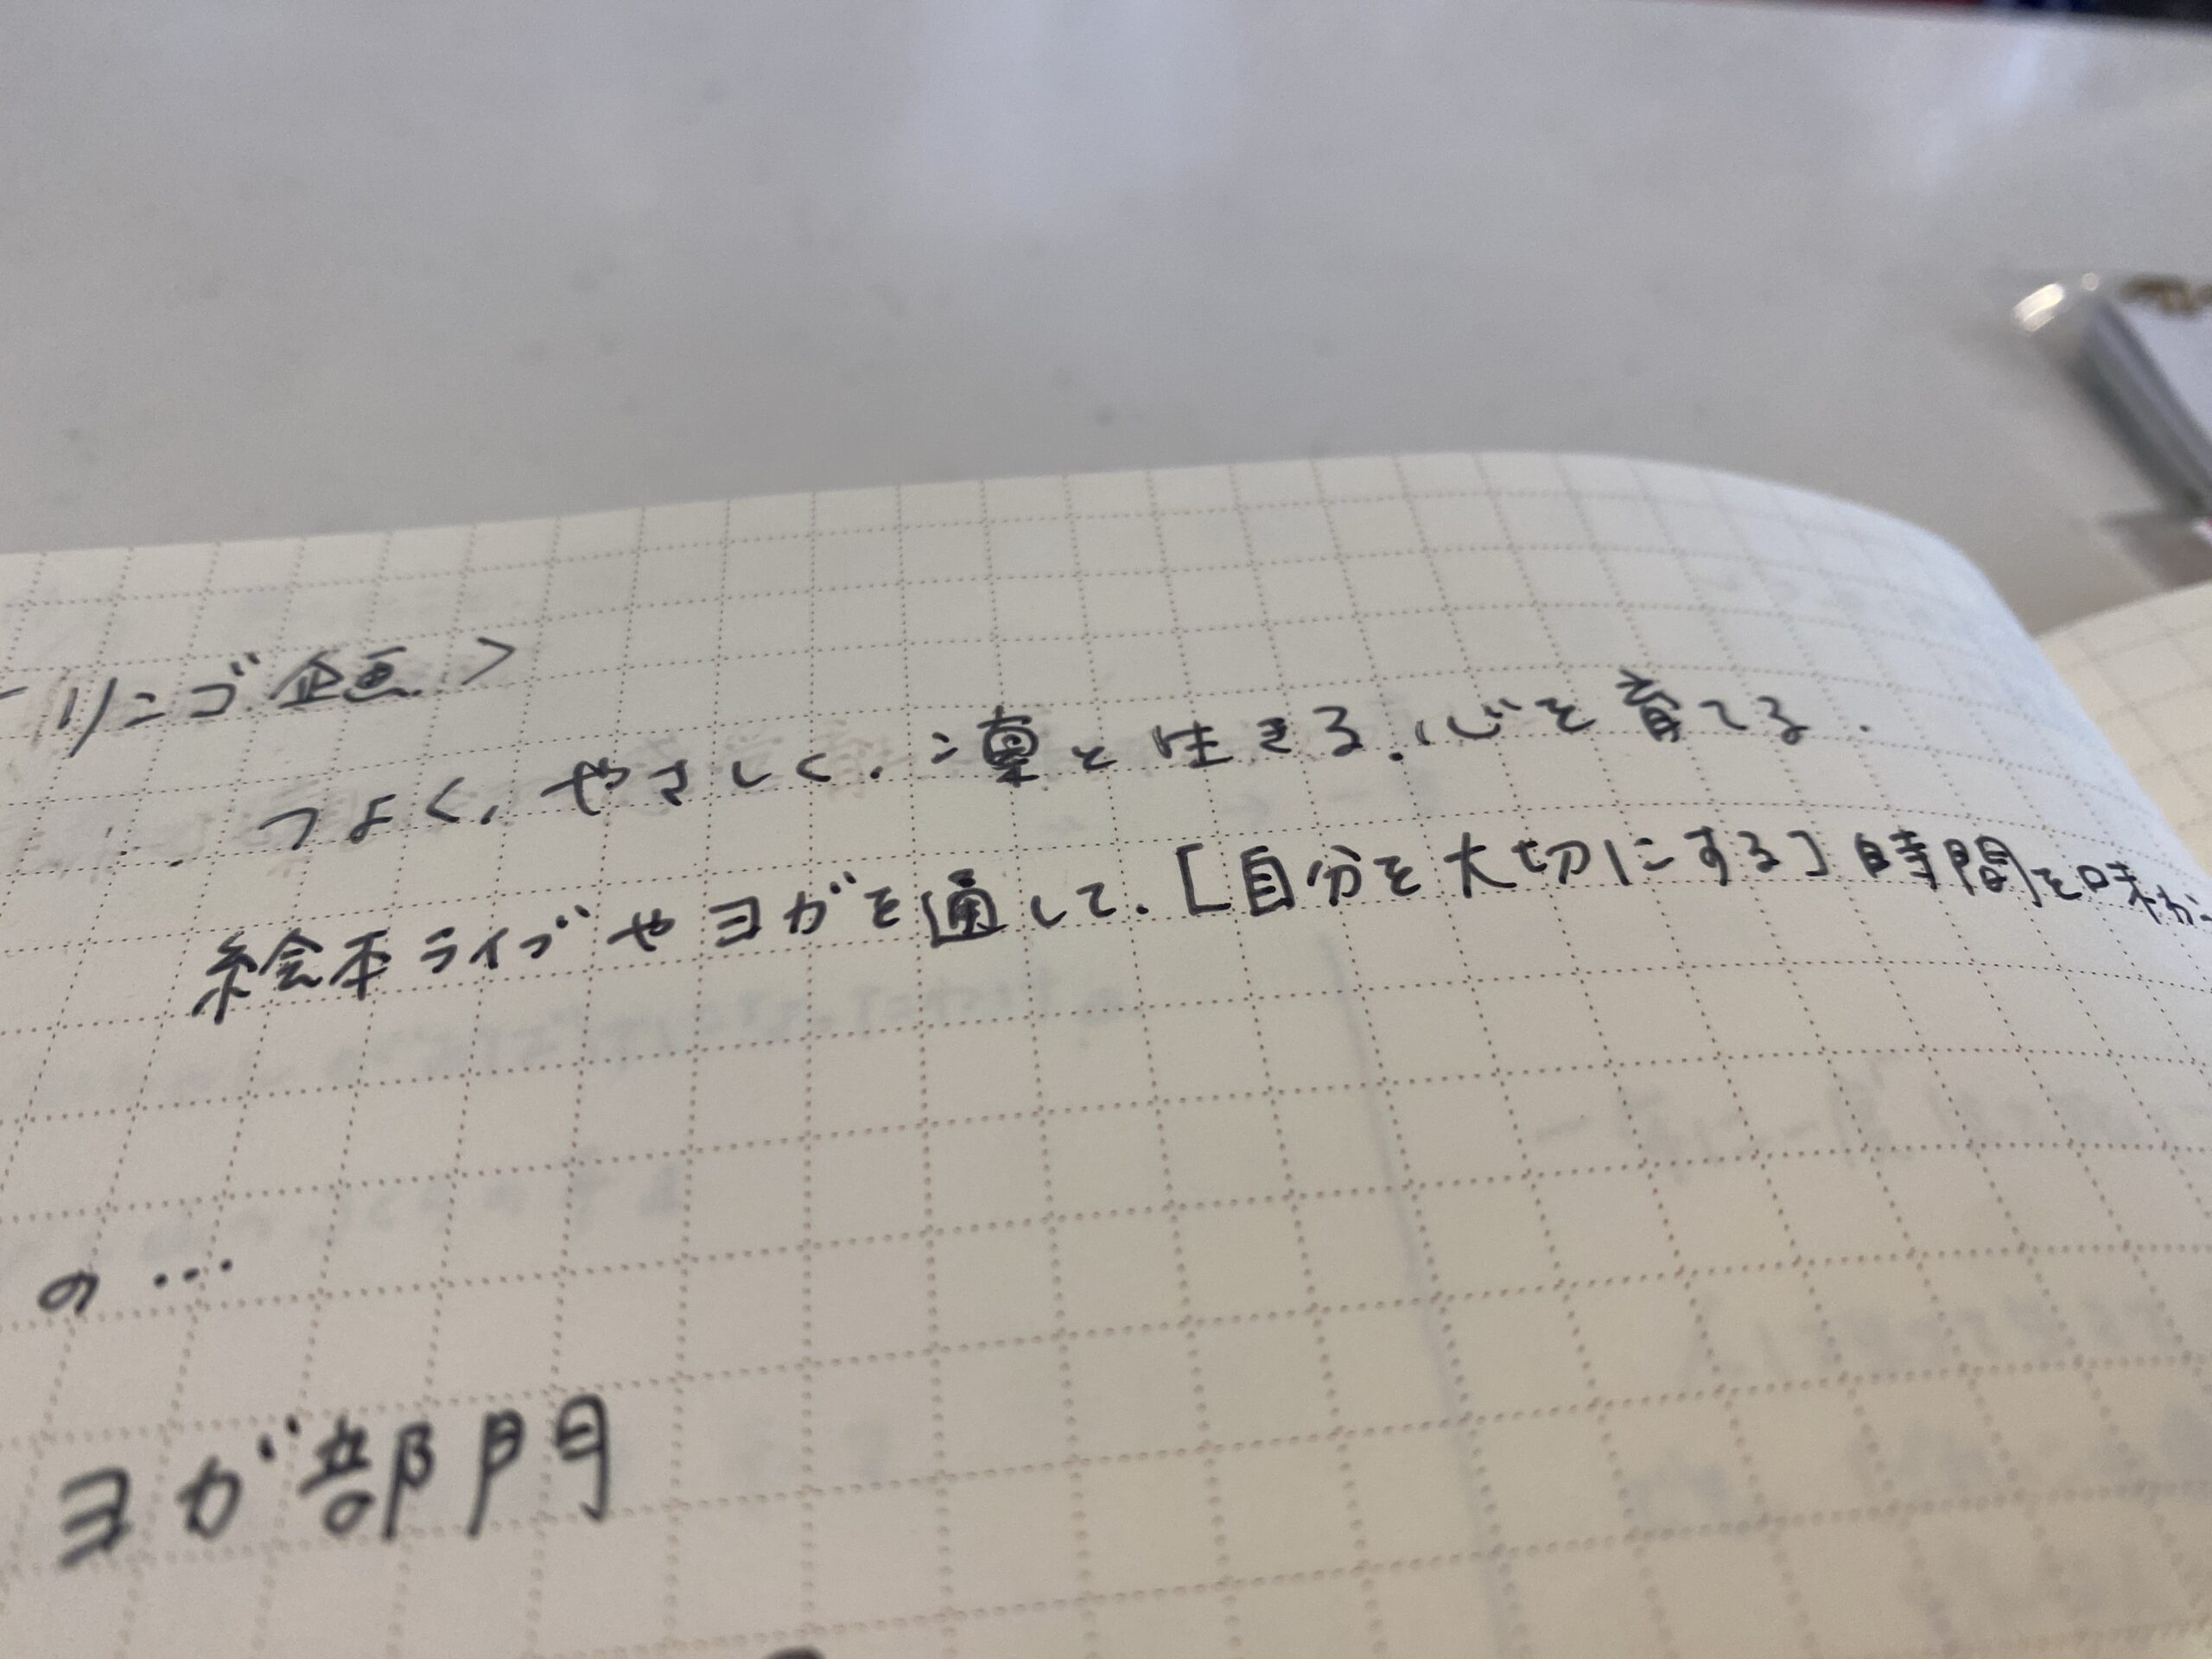 リンゴ企画>
つよく、やさしく、凛と生きる、心を育てる.
絵本ライブやヨガを通して、[自分を大切にする]時間を味わ
の…
ヨガ部門